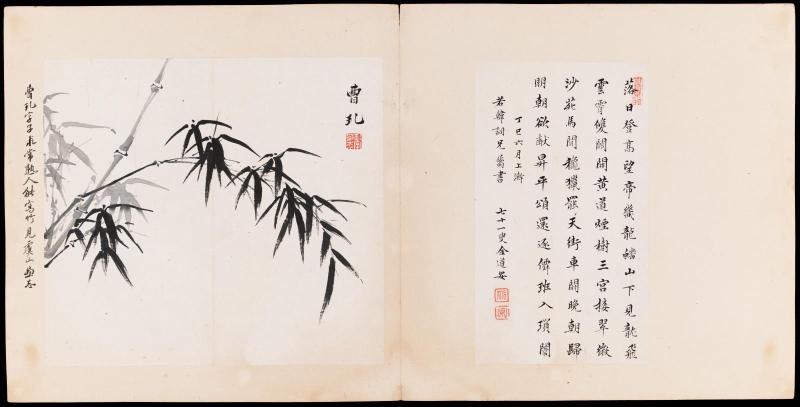 落日登高望帝畿龍蟠山下見龍飛
雲霄雙闕開黃道煙樹三宮接翠微
沙苑馬閒龝獵罷天街車鬧晚朝歸
明朝欲獻昇平頌還逐僊班入瑣闈
丁巳六月上澣
若韓詞兄屬書 七十一叟金道安
曹
曹 字子求常熟人能寫竹見虞山畫志